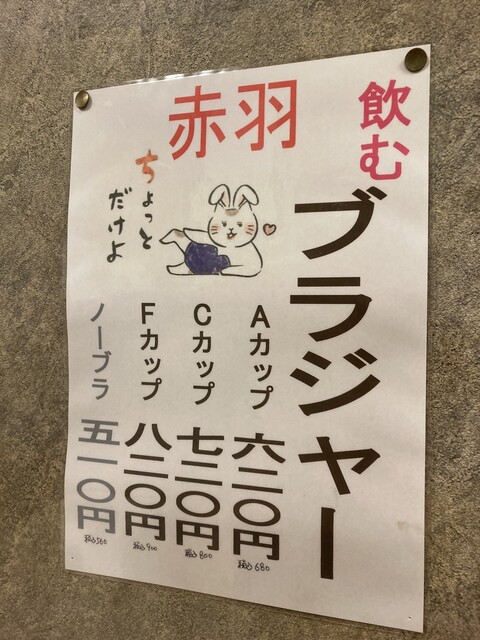 飲む
ブラジャー
赤羽
ちょっと
だけよ
Aカップ 六二〇円
税込680
Cカップ 七二〇円
税込800
Fカップ 八二〇円
税込900
ノーブラ 五一〇円
税込560